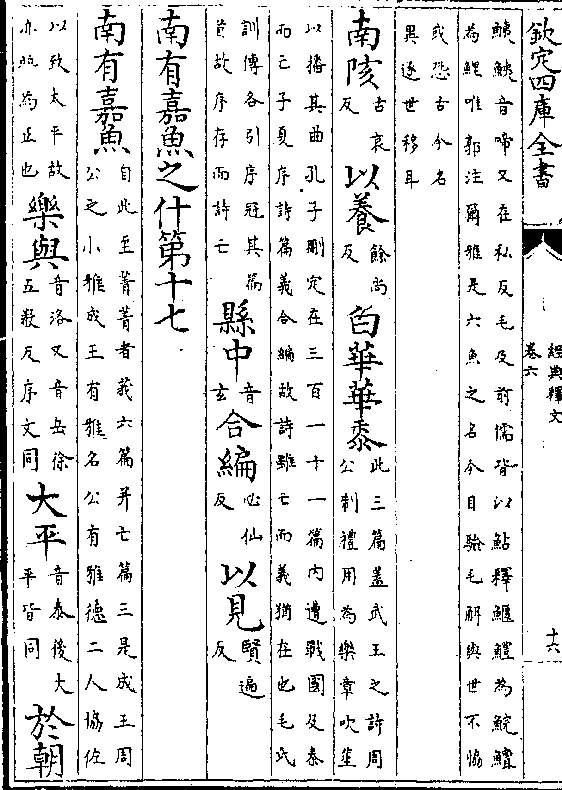 欽定四庫全書
經典釋文
卷六
十六
鮧鮧音啼又在私反毛及前儒皆以鮎釋鰋鱧為鯇鱣
為鯉唯郭注爾雅是六魚之名今目驗毛解與世不協
或恐古今名
異逐世移耳
南陔古哀反以養餘尚反白華華黍此三篇蓋武王之詩周公制禮用為樂章吹笙
以播其曲孔子刪定在三百一十一篇內遭戰國及秦
而亡子夏序詩篇義合編故詩雖亡而義猶在也毛氏
訓傳各引序冠其篇首故序存而詩亡縣中音玄合編必仙反以見賢遍反
南有嘉魚之什第十七
南有嘉魚自此至菁菁者莪六篇并亡篇三是成王周公之小雅成王有雅名公有雅德二人協佐
以致太平故亦為正也樂與音洛又音岳徐五教反序文同大平音泰後大平皆同於朝